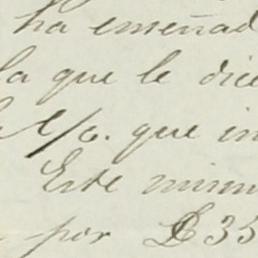 ha enseñad
la que le dice
L/o. que in
Este mism
por $35